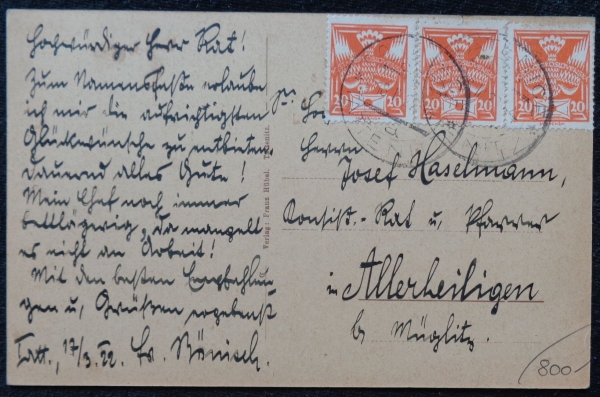 Hochwürdiger Herr Rat!
Zum Namensfeste erlaube
ich mir die aufrichtigsten
Glückwünsche zu entbieten,
dauernd alles Gute!
Mein Chef noch immer
bettlägerig, da mangelt
es nicht an Arbeit!
Mit den besten Empfehlun-
gen u. Grüßen ergebenst
Tatt., 17/3. 22. Fr. Bönisch.
Verlag: Franz Hübel.
20 20 20 20 20 20
Sr. Hoch
Herrn
Josef Haselmann,
Konsist.-Rat u. Pfarrer
in Allerheiligen
b. Müglitz.
800-